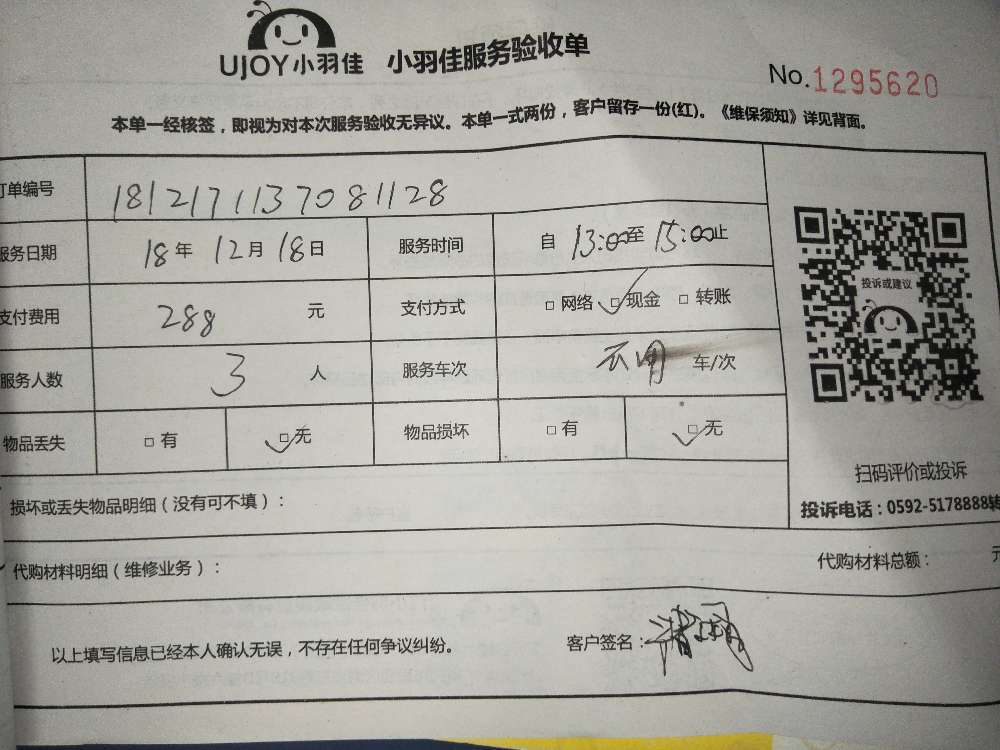 UJOY小羽佳 小羽佳服务验收单
No.1295620
本单一经核签，即视为对本次服务验收无异议。本单一式两份，客户留存一份(红)。《维保须知》详见背面。
订单编号 1812171137081128
服务日期 18年 12月 18日 服务时间 自 13:00至 15:00止
支付费用 288 元 支付方式 □网络 □现金 □转账
服务人数 3 人 服务车次 不用 车/次
物品丢失 □有 □无 物品损坏 □有 □无
投诉或建议
扫码评价或投诉
投诉电话：0592-5178888转
损坏或丢失物品明细（没有可不填）：
代购材料明细（维修业务）： 代购材料总额： 元
以上填写信息已经本人确认无误，不存在任何争议纠纷。 客户签名：